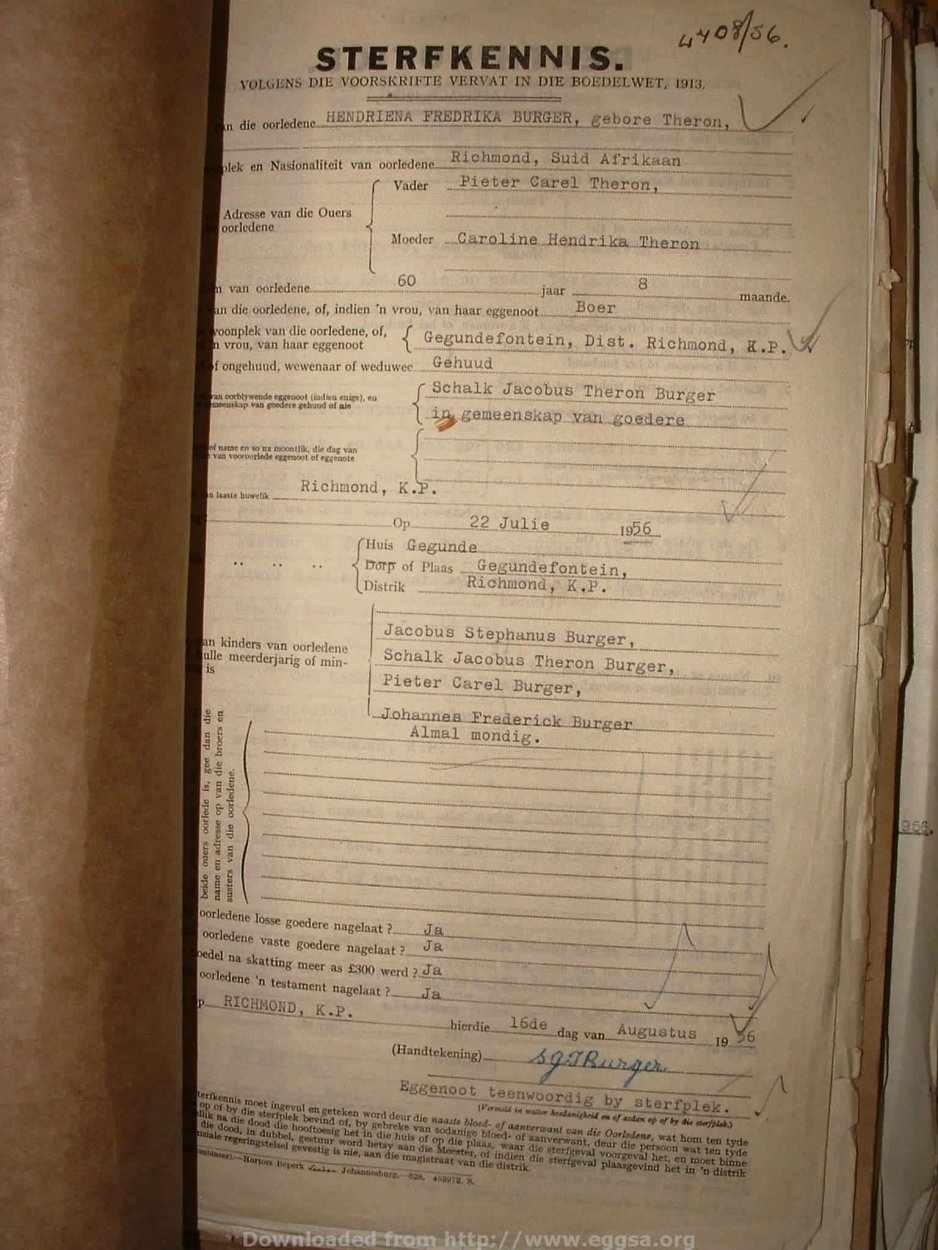 4708/56.
STERFKENNIS.
VOLGENS DIE VOORSKRIFTE VERVAT IN DIE BOEDELWET, 1913.
an die oorledene HENDRIENA FREDRIKA BURGER, gebore Theron,
plek en Nasionaliteit van oorledene Richmond, Suid Afrikaan
Vader Pieter Carel Theron,
Adresse van die Ouers
oorledene
Moeder Caroline Hendrika Theron
van oorledene 60 jaar 8 maande.
an die oorledene, of, indien 'n vrou, van haar eggenoot Boer
woonplek van die oorledene, of,
n vrou, van haar eggenoot Gegundefontein, Dist. Richmond, K.P.
of ongehuud, wewenaar of weduwee Gehuud
van oorblywende eggenoot (indien enige), en Schalk Jacobus Theron Burger
gemeenskap van goedere gehuud of nie in gemeenskap van goedere
of name en so na moontlik, die dag van
van vooroorlede eggenoot of eggenote
an laaste huwelik Richmond, K.P.
Op 22 Julie 1956
Huis Gegunde
Dorp of Plaas Gegundefontein,
Distrik Richmond, K.P.
Jacobus Stephanus Burger,
van kinders van oorledene
hulle meerderjarig of min- Schalk Jacobus Theron Burger,
is
Pieter Carel Burger,
Johannes Frederick Burger
Almal mondig.
beide ouers oorlede is, gee dan die
name en adresse op van die broers en
susters van die oorledene.
oorledene losse goedere nagelaat ? Ja
oorledene vaste goedere nagelaat ? Ja
oedel na skatting meer as £300 werd ? Ja
oorledene 'n testament nagelaat ? Ja
op RICHMOND, K.P. hierdie 16de dag van Augustus 1956
(Handtekening) S J T Burger
Eggenoot teenwoordig by sterfplek.
(Vermeld in watter hoedanigheid en of aldan op of by die sterfplek.)
terfkennis moet ingevul en geteken word deur die naaste bloed- of aanverwant van die Oorledene, wat hom ten tyde
op of by die sterfplek bevind of, by gebreke van sodanige bloed- of aanverwant, deur die persoon wat ten tyde
lik na die dood die hooftoesig het in die huis of op die plaas, waar die sterfgeval voorgeval het, en moet binne
die dood, in dubbel, gestuur word hetsy aan die Meester, of indien die sterfgeval plaasgevind het in 'n distrik
nsiale regeringstelsel gevestig is nie, aan die magistraat van die distrik.
Hortors Beperk Johannesburg.
Downloaded from http://www.eggsa.org